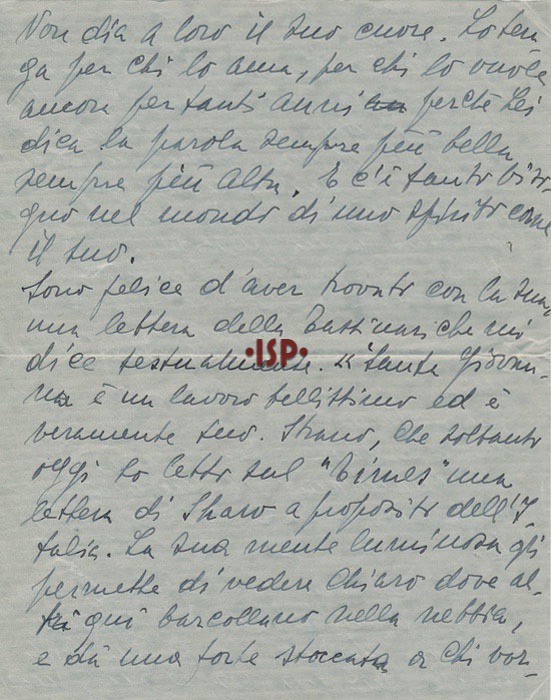 Non dia a loro il suo cuore. Lo ten
ga per chi lo ama, per chi lo vuole
ancora per tanti anni perchè Lei
dica la parola sempre più bella
sempre più alta. E c'è tanto biso
gno nel mondo di uno spirito come
il suo.
Sono felice d'aver trovato con la sua,
una lettera della che mi
dice testualmente. "Santa Giovan-
na è un lavoro bellissimo ed è
veramente suo. Strano, che soltanto
oggi ho letto sul "Times" una
lettera di Shaw a proposito dell'I-
talia. La sua mente luminosa gli
permette di vedere chiaro dove al-
tri qui barcollano nella nebbia,
e dà una forte stoccata a chi vor-
•ISP•